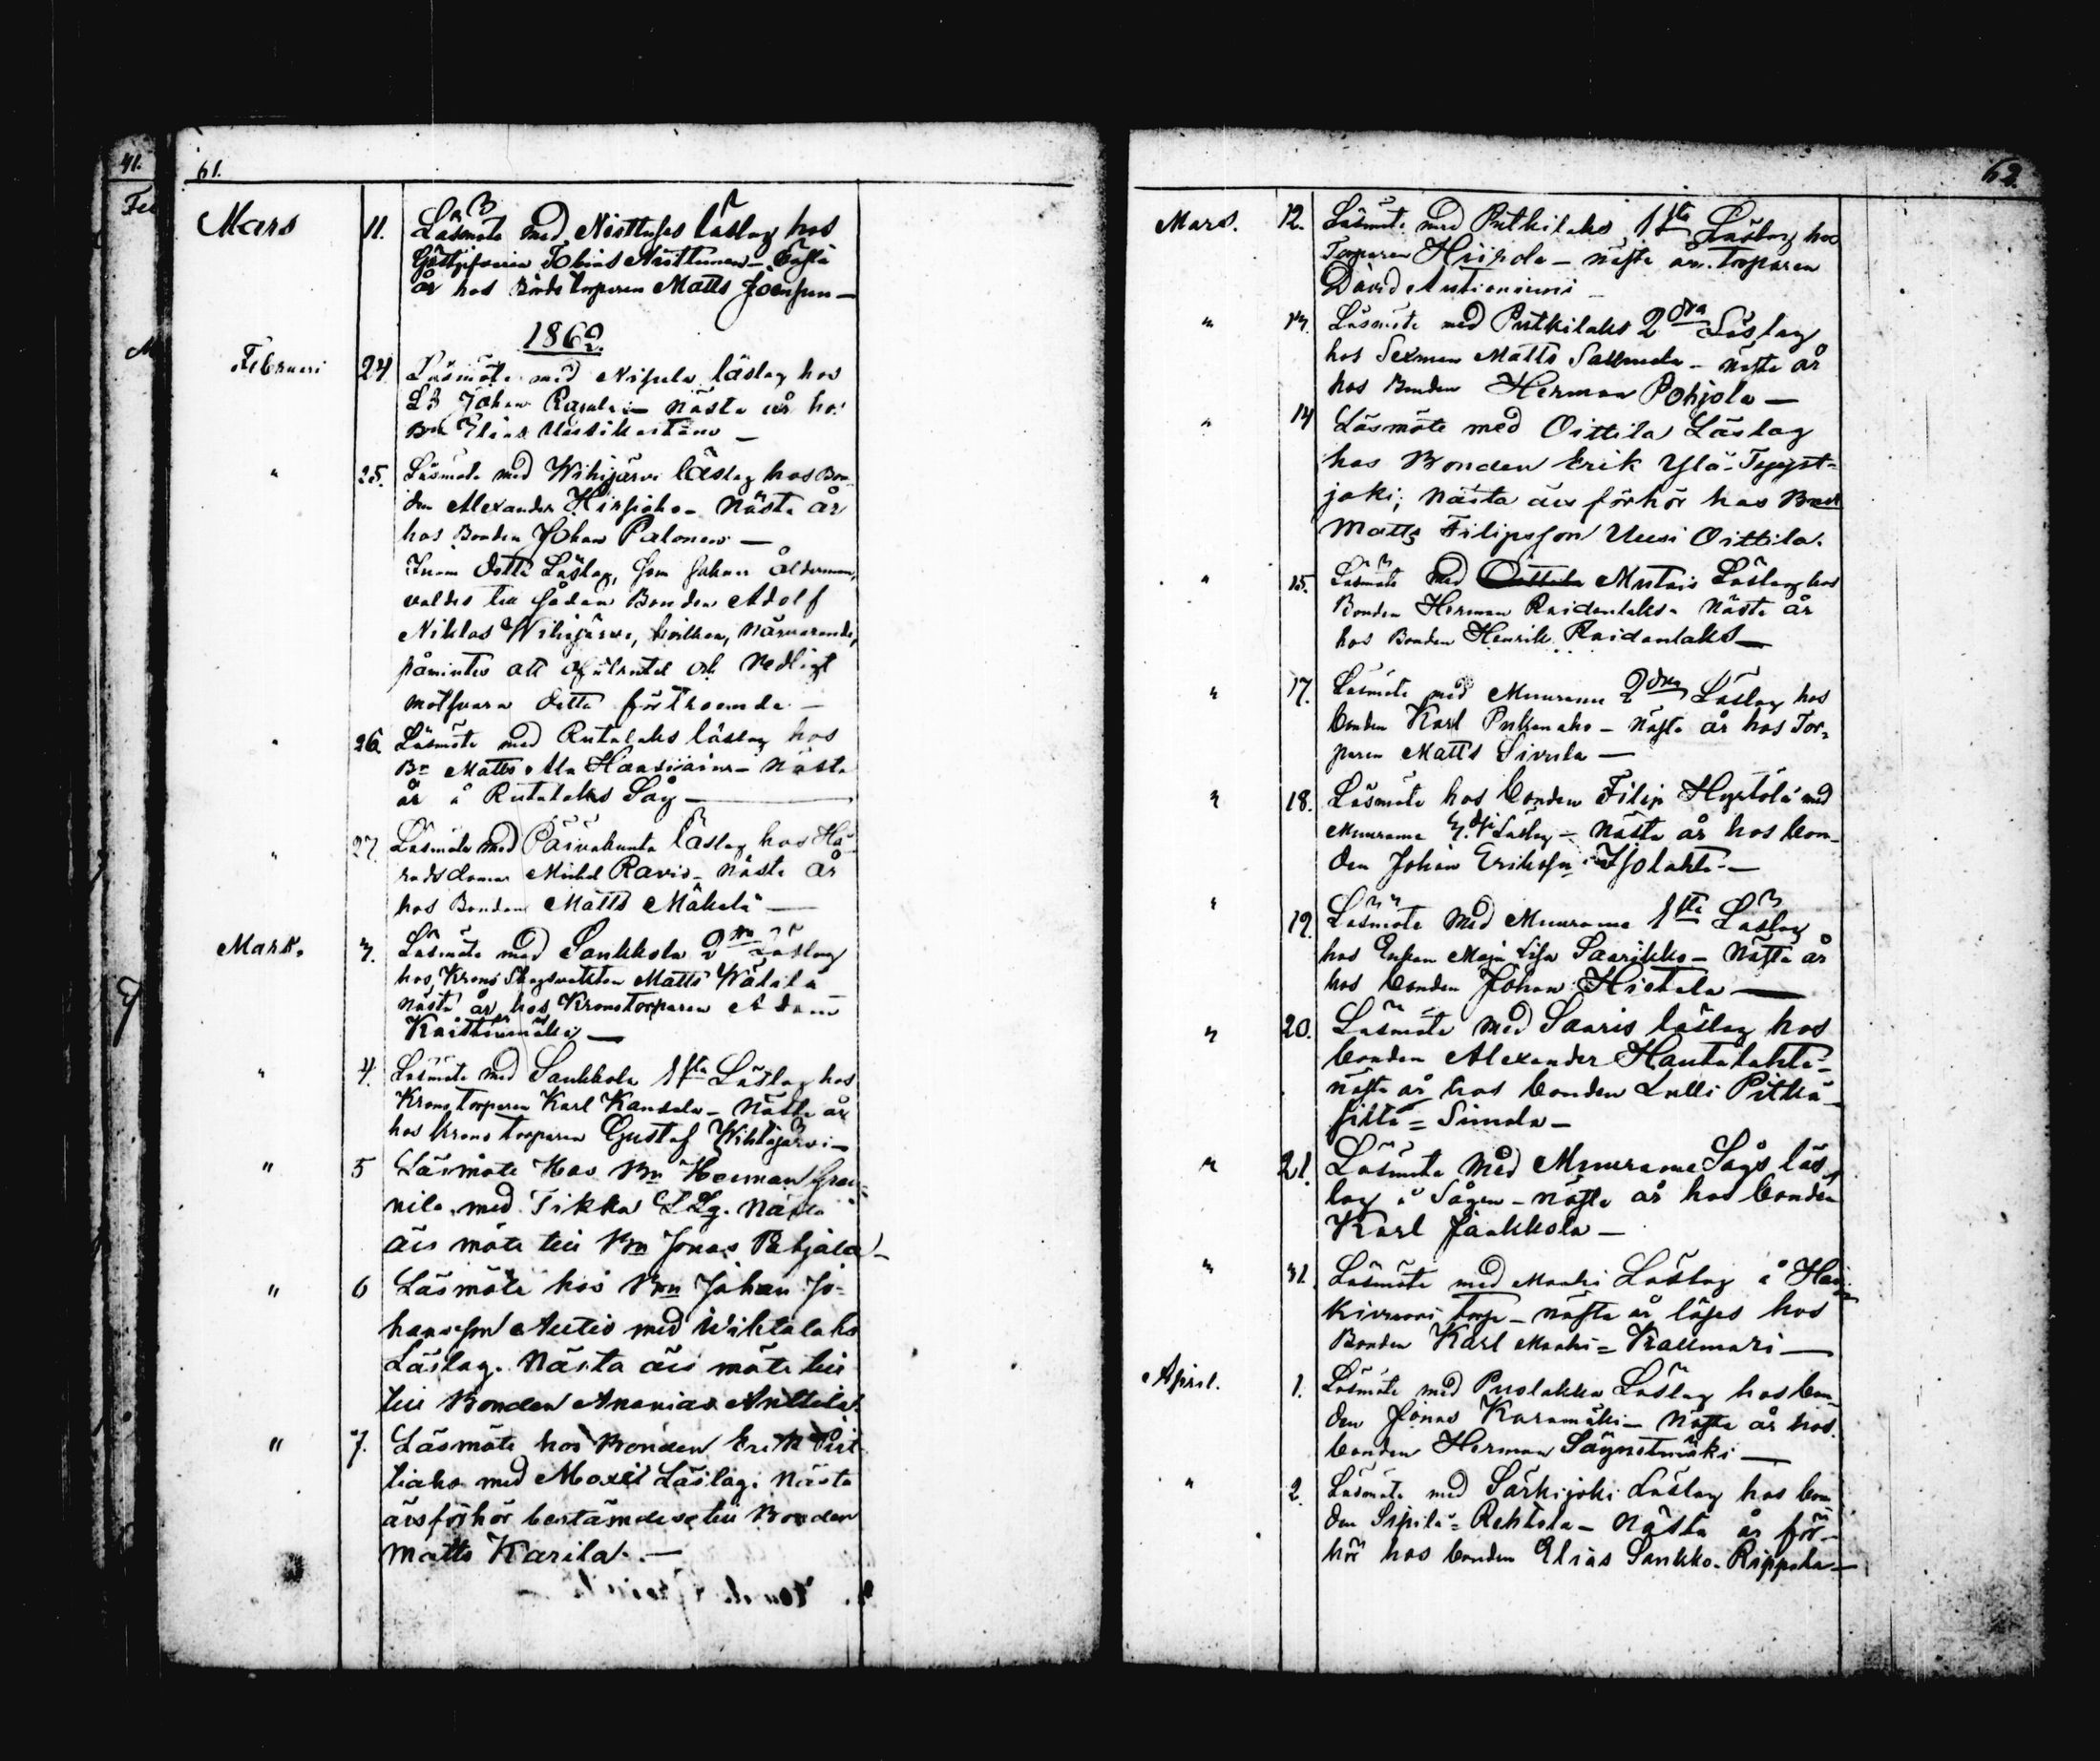 41.
61.
Mars 11. Läsmöte med Niittuses läslag hos
Gästgifvaren Tobias Niittunen – Nästa
år hos Matts Joensuu –
1862.
Februari 24 Läsmöte med Nisula läslag hos
Johan Rasula – Nästa år hos
Bn Elias
" 25. Läsmöte med Wihijärvi läslag hos Bon-
den Alexander Hirsiaho – Nästa år
hos Bonden Johan Palonen –
Inom detta Läslag, som saknar Ålderman,
valdes till sådan Bonden Adolf
Niklas Wihijärvi, hvilken, närvarande,
påmintes att och redligt
motsvara detta förtroende –
" 26. Läsmöte med Rutalaks läslag hos
Bn Matts Ala Haasiaine – Nästa
år å Rutalaks Såg –
" 27. Läsmöte med Päiväkunta läslag hos Hä-
radsdomar Michel Ravio – Nästa år
hos Bonden Matts Mäkelä –
Mars. 3. Läsmöte med Saukkola 2dra Läslag
hos Krono Skogvakten Matts Wälilä
Nästa år hos Kronotorparen Adam
Kaitainmäki –
" 4. Läsmöte med Saukkola 1sta Läslag hos
Kronotorparen Karl Kansala – Nästa år
hos Kronotorparen Gustaf Wihtajärvi –
" 5 Läsmöte Hos Bn Herman
nila med Tikka LLg. Nästa
års möte till Bn Jonas Pohjala –
" 6 Läsmöte hos Bn Johan Jo-
hansson Autio med Wihtalaks
Läslag. Nästa års möte till
till Bonden Ananias Anttila.
" 7. Läsmöte hos Bonden Erik Piit
tiaho med Moxi Läslag. Nästa
årsförhör bestämdes till Bonden
Matts Karila. –
62.
Mars. 12. Läsmöte med Putkilaks 1sta Läslag hos
Torparen Hiipola – näste år torparen
David
" 13. Läsmöte med Putkilaks 2dra Läslag
hos Sexman Matts – näste år
hos Bonden Herman Pohjola –
" 14 Läsmöte med Oittila Läslag
hos Bonden Erik Ylä-Tyyst-
joki; Nästa års förhör hos Bond
Matts Filipsson Uusi Oittila.
" 15. Läsmöte med Oittila Mutais Läslag hos
Bonden Herman Raidanlaks – Nästa år
hos Bonden Henrik Raidanlaks –
" 17. Läsmöte med Muurame 2dra Läslag hos
bonden Karl Pukenaho – Näste år hos Tor-
paren Matts Sivula –
" 18. Läsmöte hos bonden Filip Hyrtölä med
Muurame 3dje Läslag – Nästa år hos bon-
den Johan Eriksson Isolahti –
" 19. Läsmöte med Muurame 1sta Läslag
hos Enkan Maja Lisa Saarikko – Näste år
hos bonden Johan Hietala –
" 20. Läsmöte med Saaris läslag hos
bonden Alexander Hautalahti –
näste år hos bonden Lulli Pitkä-
silta = Simola –
" 21. Läsmöte med Muurame Sågs läs-
lag å Sågen – näste år hos bonden
Karl Jaakkola –
" 31. Läsmöte med Maahi Läslag å
Kivivuori torp – näste år läses hos
Bonden Karl Maahi = Kallmari –
April. 1. Läsmöte med Puolakka Läslag hos bon-
den Jonas Karamäki – Näste år hos
bonden Herman Säynetmäki –
" 2. Läsmöte med Särkijoki Läslag hos bon
den Sipilä = Rehtola – Nästa år för-
hör hos bonden Elias Saukko-Rippola –